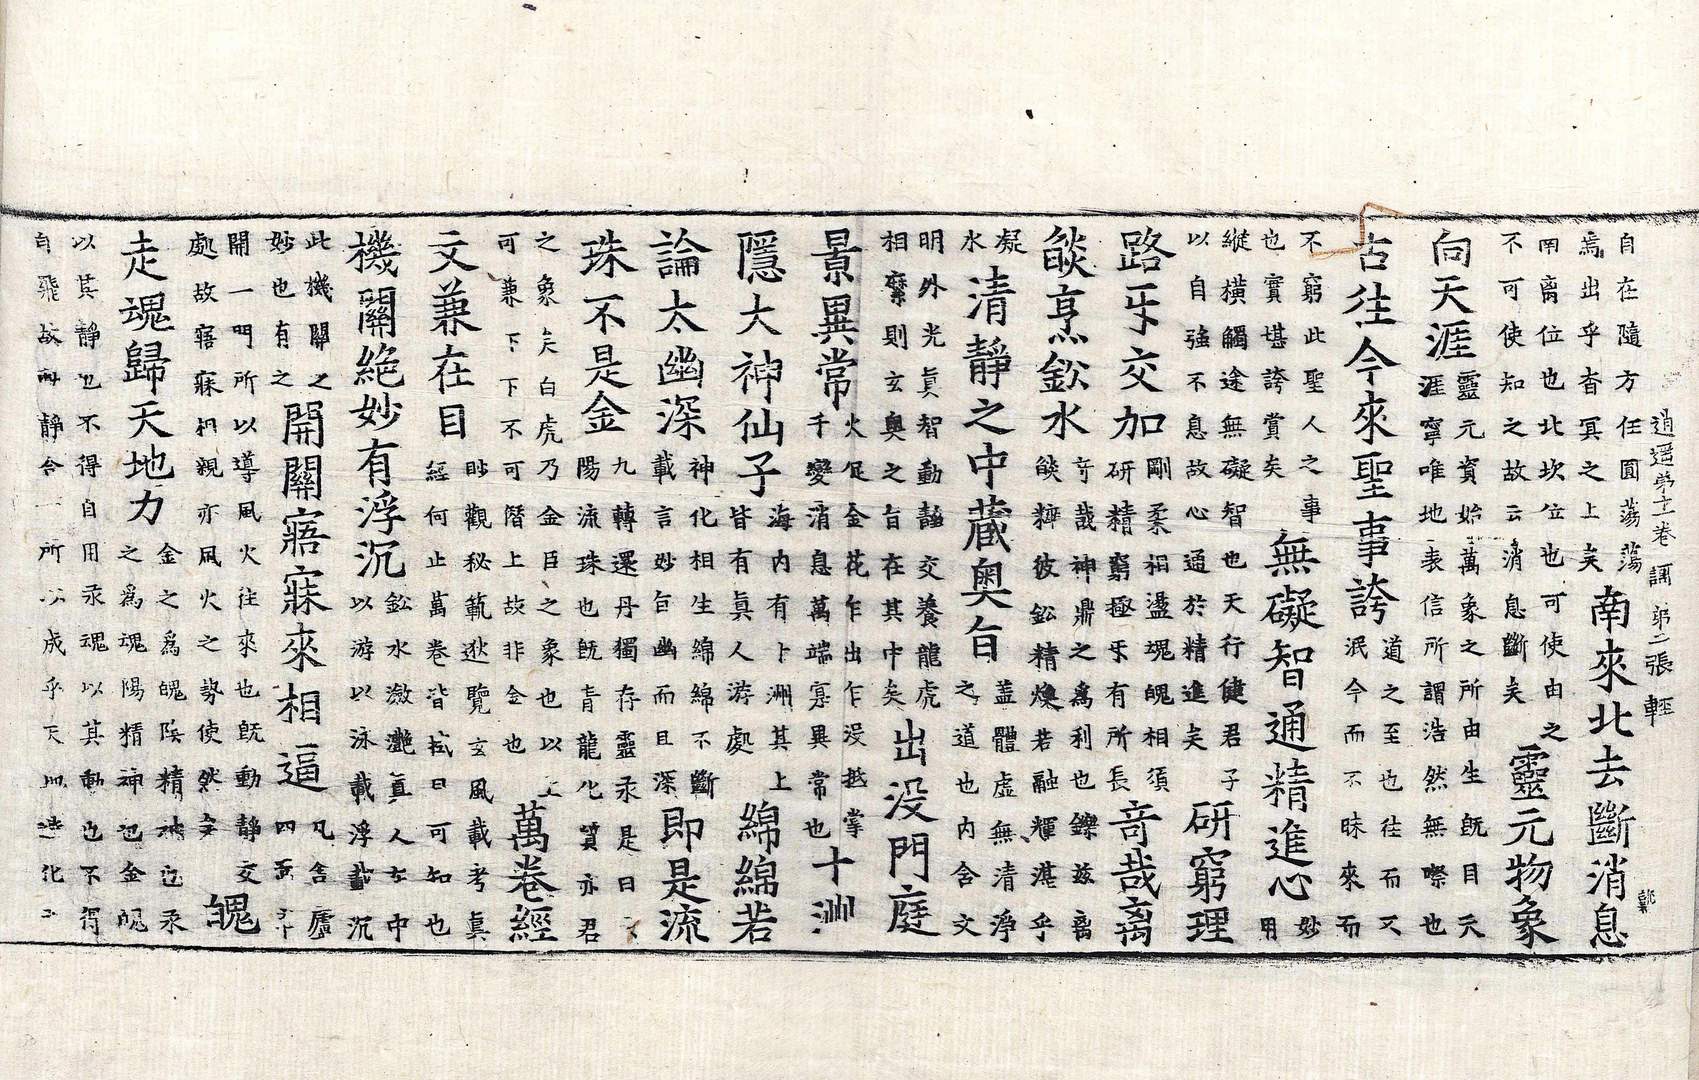 逍遥第十一卷 第二張 輕
自在隨方任圓蕩蕩
焉出乎杳冥之上矣
南來北去斷消息
南离位也北坎位也可使由之
不可使知之故云消息斷矣
靈元物象
向天涯
靈元資始萬象之所由生旣目天
涯寧唯地表信所謂浩然無際也
古往今來聖事誇
道之至也往而不
泯今而不昧來而
不窮此聖人之事
也實堪誇賞矣
無礙智通精進心
妙
用
縱橫觸途無礙智也天行健君子
以自強不息故心通於精進矣
研窮理
路㸦交加
剛柔相盪魂魄相須
研精窮極㸦有所長
竒哉离
燄烹鈆水
竒哉神鼎之爲利也鑠兹离
燄粹彼鈆精煥若融輝湛乎
凝
水
清靜之中藏奥旨
蓋體虛無清淨
之道也内含文
明外光真智動靜交養龍虎
相縻則玄奥之旨在其中矣
出没門庭
景異常
火足金花乍出乍没抵掌
千變消息萬端寔異常也
十洲
隱大神仙子
海内有十洲其上
皆有真人游處
綿綿若
論太幽深
神化相生綿綿不斷
載言妙旨幽而且深
即是流
珠不是金
九轉還丹獨存靈汞是曰
陽流珠也旣青龍化質亦君
之象矣白虎乃金臣之象也以上
可兼下下不可僭上故非金也
萬卷經
文兼在目
眇觀秘範逖覽玄風載考真
經何止萬卷皆拭目可知也
機關絶妙有浮沉
鈆水瀲灔真人在中
以游以泳載浮載沉
此機關之
妙也有之
開關寤寐來相逼
凡含廬
四
開一門所以導風火往來也旣動靜交
處故寤寐相親亦風火之勢使然矣
魄
走魂歸天地力
金之爲魄陰精神也汞
之爲魂陽精神也金魄
以其靜也不得自用汞魂以其動也不得
自飛故兩靜合一所以成乎天地造化